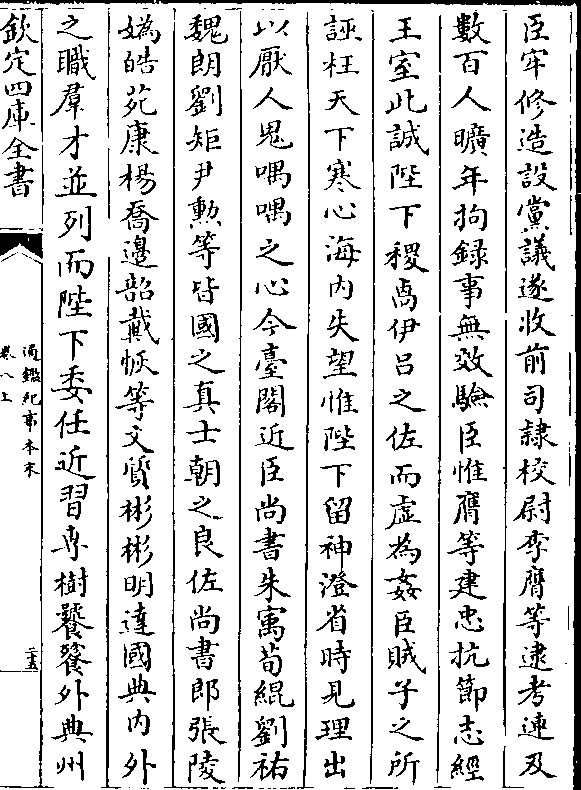 臣牢修造設黨議遂收前司隸校尉李膺等逮考連及
數百人曠年拘録事無效驗臣惟膺等建忠抗節志經
王室此誠陛下稷卨伊呂之佐而虛為姦臣賊子之所
誣枉天下寒心海内失望惟陛下留神澄省時見理出
以厭人鬼喁喁之心今臺閣近臣尚書朱㝢荀緄劉祐
魏朗劉矩尹勲等皆國之真士朝之良佐尚書郎張陵
媯皓苑康楊喬邊韶戴恢等文質彬彬明達國典内外
之職羣才並列而陛下委任近習専樹饕餮外典州
欽定四庫全書
通鑑紀事本末
卷八上
二十五